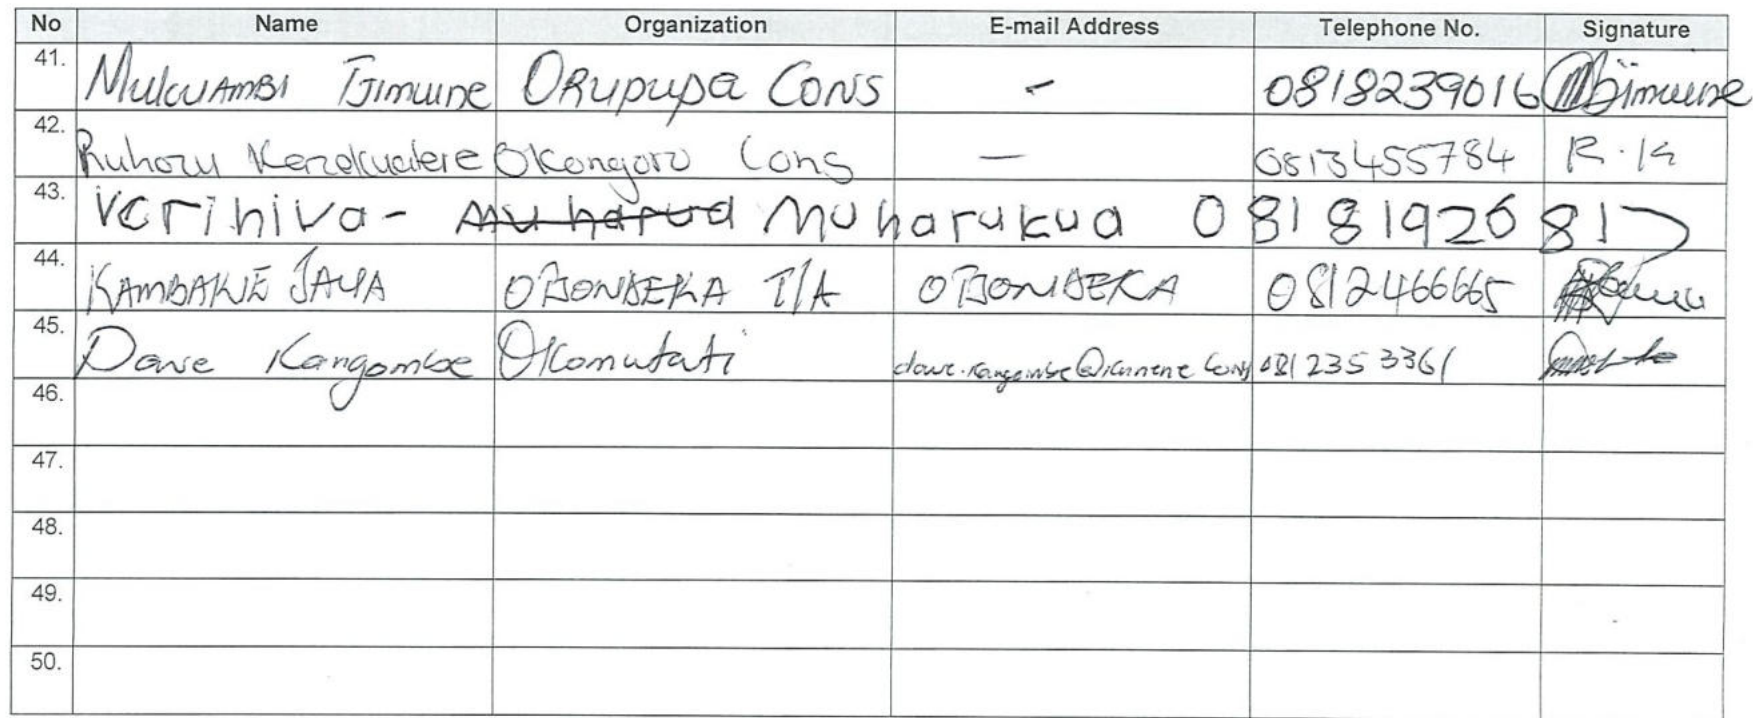 No Name Organization E-mail Address Telephone No. Signature
41. Mukuambi Tjimuine Orupupa Cons - 0818239016 Tjimuine
42. Ruhozu Kezekuatere Okongoro Cons — 0813455784 R.K
43. Verihiva - Muharukua 0818192681
44. KAMBAKUE JAUA OTJONDEKA T/A OTJONDEKA 0812466665
45. Dave Kangombe Okomutati 081 235 3361
46.
47.
48.
49.
50.